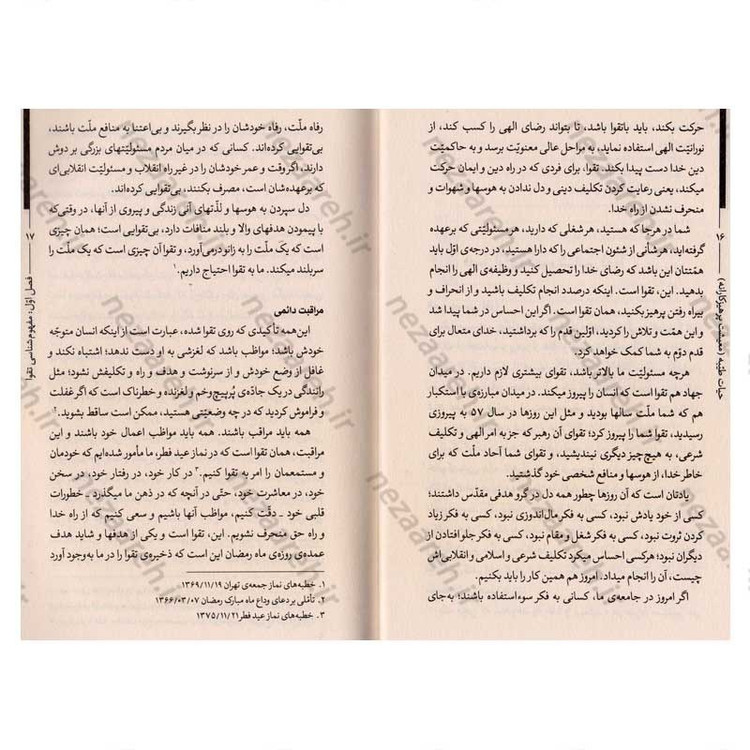 حرکت بکند، باید باتقوا باشد، تا بتواند رضای الهی را کسب کند، از
نورانیّت الهی استفاده نماید، به مراحل عالی معنویّت برسد و به حاکمیّت
دین خدا دست پیدا بکند. تقوا، برای فردی که در راه دین و ایمان حرکت
میکند، یعنی رعایت کردن تکلیف دینی و دل ندادن به هوسها و شهوات و
منحرف نشدن از راه خدا.
شما در هرجا که هستید، هر شغلی که دارید، هر مسئولیّتی که برعهده
گرفته‌اید، هر شأنی از شئون اجتماعی را که دارا هستید، در درجه‌ی اوّل باید
همّتتان این باشد که رضای خدا را تحصیل کنید و وظیفه‌ی الهی را انجام
بدهید. این، تقوا است. اینکه درصدد انجام تکلیف باشید و از انحراف و
بیراه رفتن پرهیز بکنید، همان تقوا است. اگر این احساس در شما پیدا شد
و این همّت و تلاش را کردید، اوّلین قدم را که برداشتید، خدای متعال برای
قدم دوّم به شما کمک خواهد کرد.
هرچه مسئولیّت ما بالاتر باشد، تقوای بیشتری لازم داریم. در میدان
جهاد هم تقوا است که انسان را پیروز میکند. در میدان مبارزه‌ی با استکبار
هم که شما ملّت سالها بودید و مثل این روزها در سال ۵۷ به پیروزی
رسیدید، تقوا شما را پیروز کرد؛ تقوای آن رهبر که جز به امر الهی و تکلیف
شرعی، به هیچ‌چیز دیگری نیندیشید، و تقوای شما آحاد ملّت که برای
خاطر خدا، از هوسها و منافع شخصی خود گذشتید.
یادتان است که آن روزها چطور همه دل در گرو هدفی مقدّس داشتند؛
کسی از خود یادش نبود، کسی به فکر مال‌اندوزی نبود، کسی به فکر زیاد
کردن ثروت نبود، کسی به فکر شغل و مقام نبود، کسی به فکر جلو افتادن از
دیگران نبود؛ هرکسی احساس میکرد تکلیف شرعی و اسلامی و انقلابی‌اش
چیست، آن را انجام میداد. امروز هم همین کار را باید بکنیم.
اگر امروز در جامعه‌ی ما، کسانی به فکر سوءاستفاده باشند؛ به‌جای
۱۶
حیات طیّبه (معیشت پرهیزکارانه)
رفاه ملّت، رفاه خودشان را در نظر بگیرند و بی‌اعتنا به منافع ملّت باشند،
بی‌تقوایی کرده‌اند. کسانی که در میان مردم مسئولیّتهای بزرگی بر دوش
دارند، اگر وقت و عمر خودشان را در غیر راه انقلاب و مسئولیّت انقلابی‌ای
که برعهده‌شان است، مصرف بکنند، بی‌تقوایی کرده‌اند.
دل سپردن به هوسها و لذّتهای آنی زندگی و پیروی از آنها، در وقتی‌که
با پیمودن هدفهای والا و بلند منافات دارد، بی‌تقوایی است؛ همان چیزی
است که یک ملّت را به زانو درمی‌آورد، و تقوا آن چیزی است که یک ملّت را
سربلند میکند. ما به تقوا احتیاج داریم.۱
مراقبت دائمی
این‌همه تأکیدی که روی تقوا شده، عبارت است از اینکه انسان متوجّه
خودش باشد؛ مواظب باشد که لغزشی به او دست ندهد؛ اشتباه نکند و
غافل از وضع خودش و از سرنوشت و هدف و راه و تکلیفش نشود؛ مثل
رانندگی در یک جادّه‌ی پُرپیچ‌وخم و لغزنده و خطرناک است که اگر غفلت
و فراموش کردید که در چه وضعیّتی هستید، ممکن است ساقط بشوید.۲
همه باید مراقب باشند. همه باید مواظب اعمال خود باشند و این
مراقبت، همان تقوا است که در نماز عید فطر، ما مأمور شده‌ایم که خودمان
و مستمعمان را امر به تقوا کنیم.۳ در کار خود، در رفتار خود، در سخن
خود، در معاشرت خود، حتّی در آنچه که در ذهن ما میگذرد ـ خطورات
قلبی خود ـ دقّت کنیم، مواظب آنها باشیم و سعی کنیم که از راه خدا
و راه حق منحرف نشویم. این، تقوا است و یکی از هدفها و شاید هدف
عمده‌ی روزه‌ی ماه رمضان این است که ذخیره‌ی تقوا در ما به‌وجود آورد
۱. خطبه‌های نماز جمعه‌ی تهران ۱۳۶۹/۱۱/۱۹
۲. تأمّلی بر دعای وداع ماه مبارک رمضان ۱۳۶۶/۰۳/۰۷
۳. خطبه‌های نماز عید فطر ۱۳۷۵/۱۱/۲۱
۱۷
فصل اوّل: مفهوم‌شناسی تقوا
nezaareh.ir